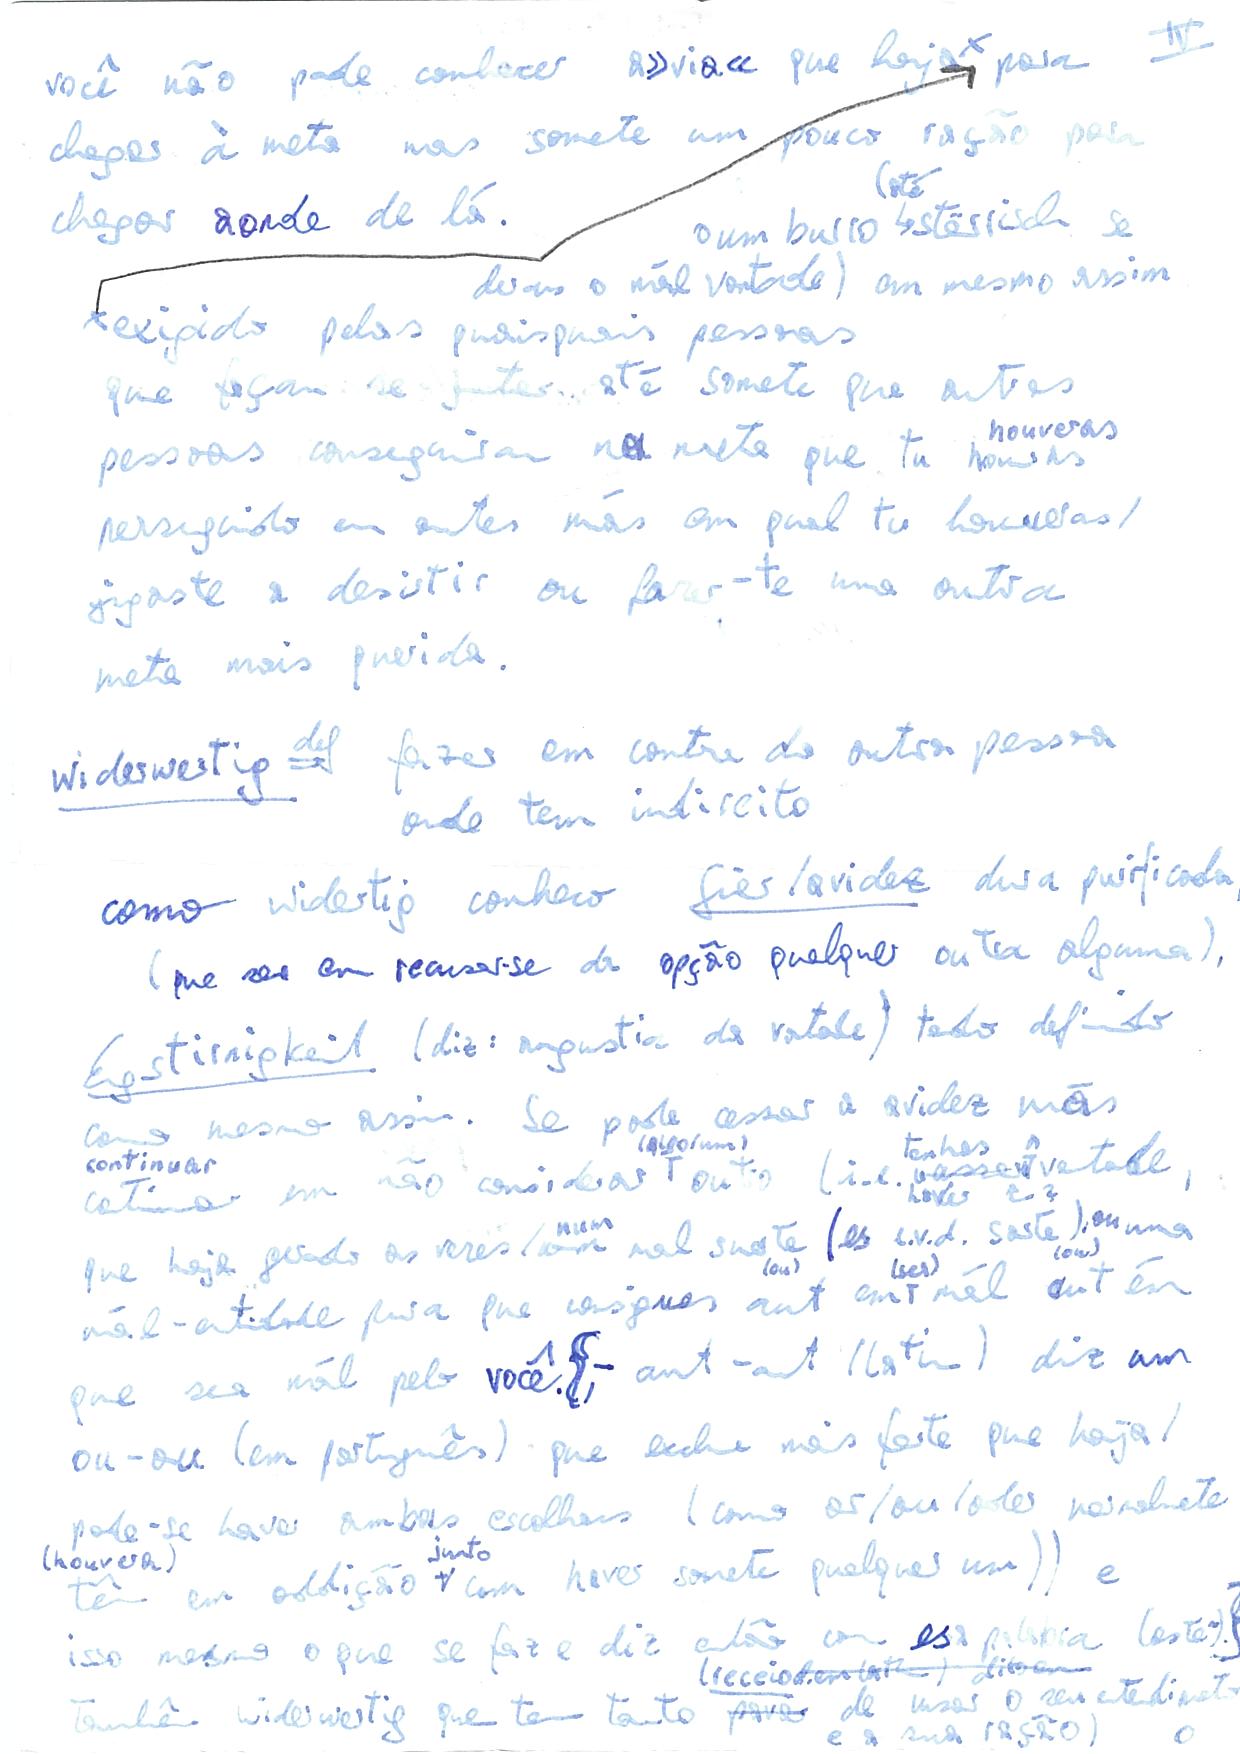 IV
você não pode conhecer a »via« que haja* para
chegar à meta mas somete um pouco ração para
chegar aonde de lá.
(até
o um burro störrisch se
deras o mál vontade) em mesmo assim
*exigido pelas quaisquais pessoas
que façam se juntar até somete que outras
pessoas conseguiram na meta que tu houveras
perseguido em antes más em qual tu houveras/
jigaste a desistir ou fazer-te uma outra
meta mais querida.
widerwertig def= fazer em contra da outra pessoa
onde tem indireito
como widertig conheco Gier/avidez dura purificada,
(que sea em recusar-se da opção qualquer outra alguma),
Engstirnigkeit (diz: angustia da vontade) tado definido
como mesmo assim. Se pode cessar a avidez más
continuar (algo/um) tenhas
em não considerar outro (i.e. vontade,
que haja gerado as vezes/num mal suorte (es i.v.d. sorte). ou uma
(ou) (ser) (ou)
mál-entidade para que consignes aut em mál aut em
que sea mál pelo você.}- aut-aut (latin) diz um
ou-ou (em português) que exclue mais forte que haja/
pode-se haver ambas escolhas (como or/ou/oder normalmete
(houvera) junto
tẽ em addição com haver somete qualquer um)) e
isso mesmo o que se faz e diz então com esa palabra (este).}
(receio
também widerwertig que tem tanto para de usar o seu entedimeto
e a sua ração) o